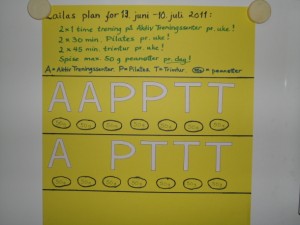 Lailas plan for 13. juni - 10. juli 2011:
2x1 time trening på Aktiv Treningssenter pr. uke!
2x30 min. Pilates pr. uke!
2x45 min. trimtur pr. uke!
Spise max. 50 g peanøtter pr. dag!
A = Aktiv Treningssenter, P = Pilates, T = Trimtur, = peanøtter
A A P P T T
A P T T T